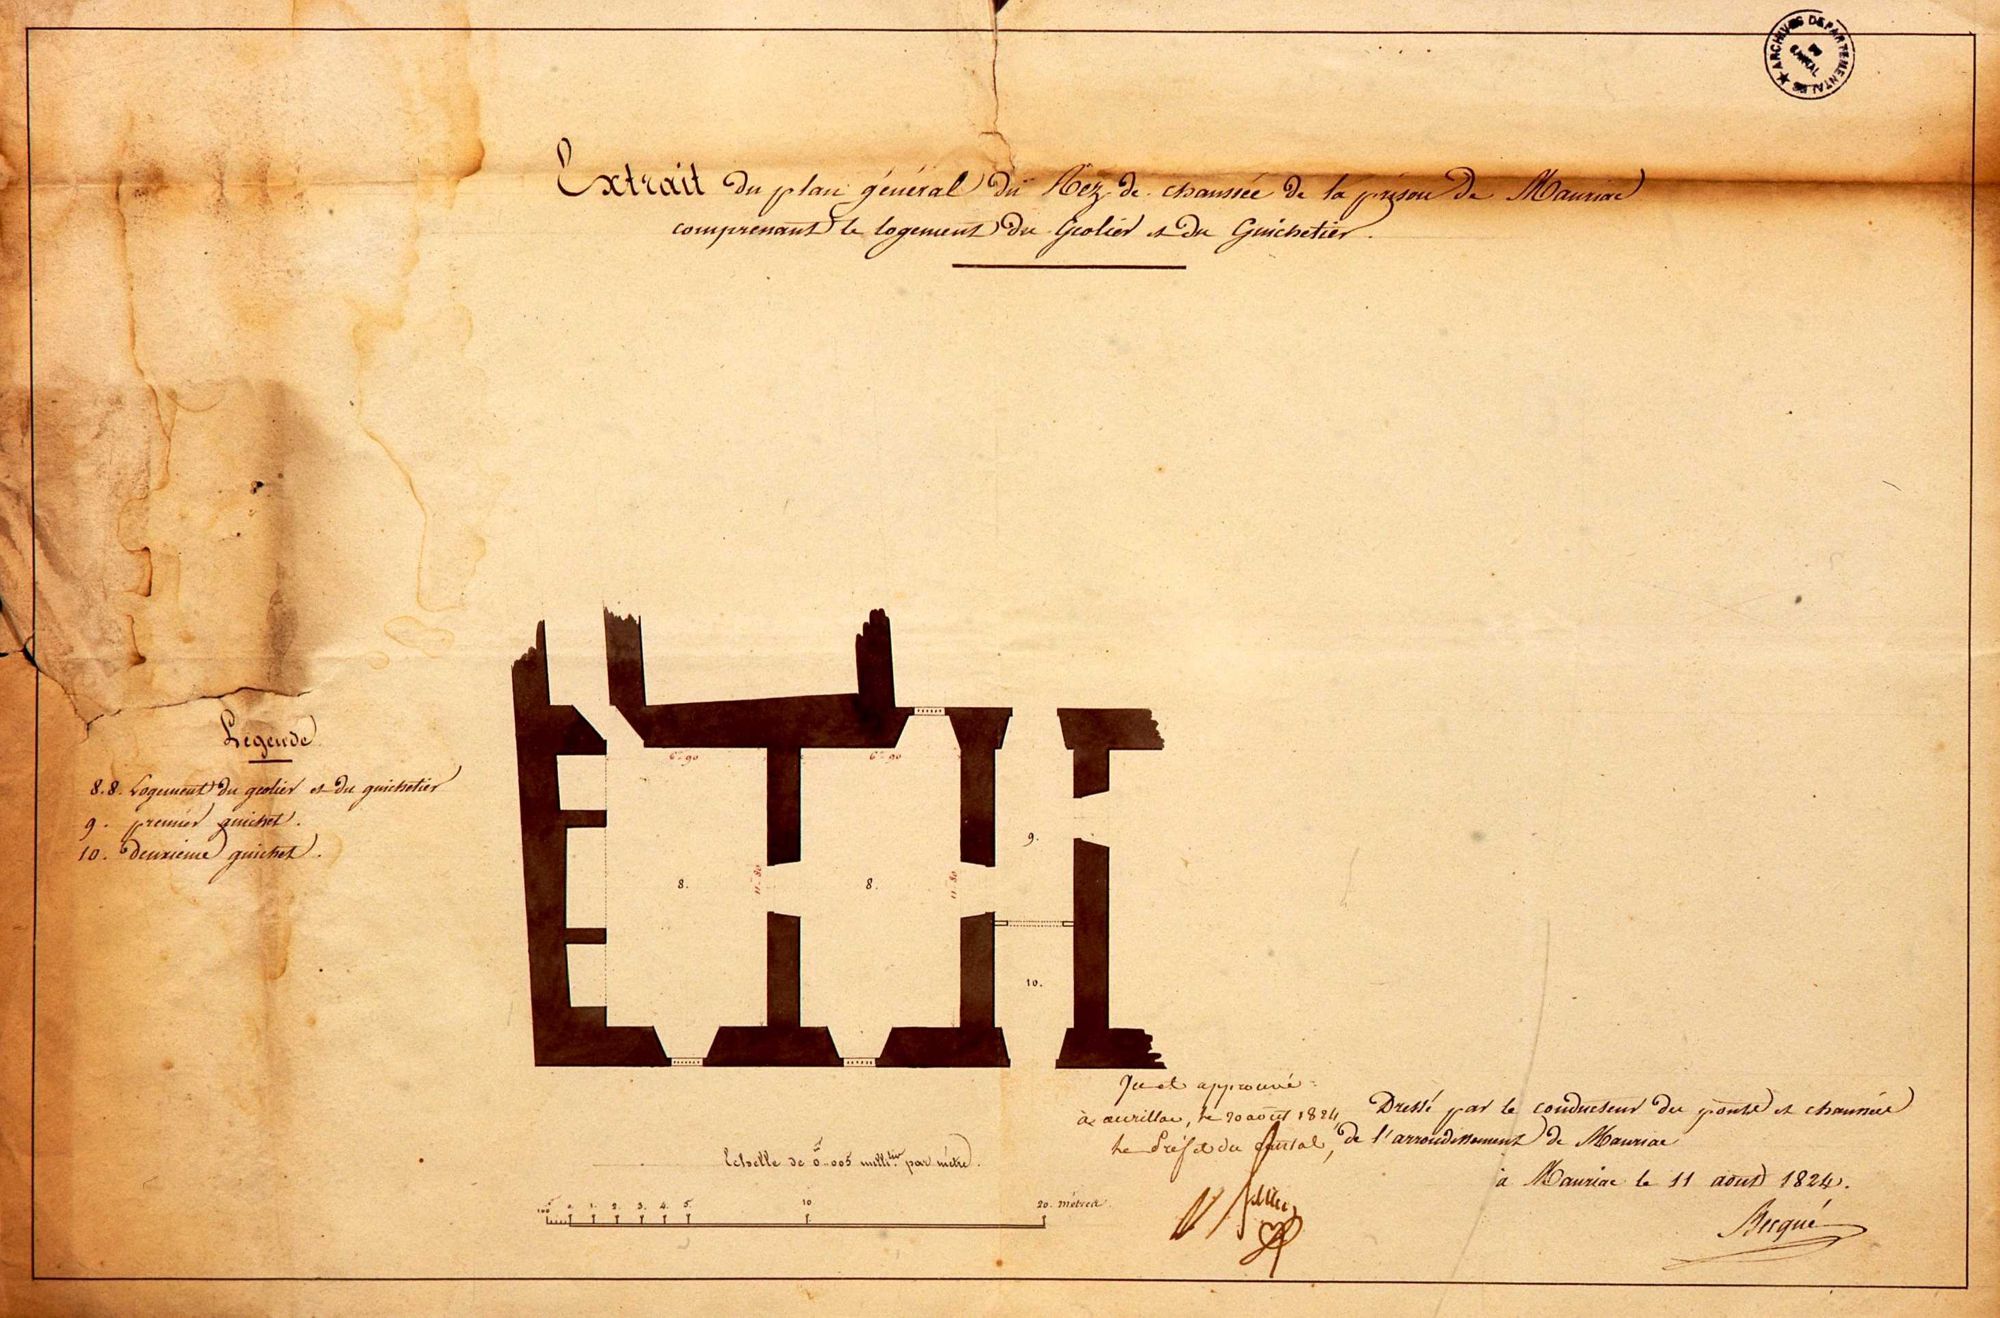 ARCHIVES DEPARTEMENTALES
DU
CANTAL
Extrait du plan général du Rez-de-chaussée de la prison de Mauriac
comprenant le logement du Geolier et du Guichetier.
Légende
8.8. Logement du geolier et du guichetier
9. premier guichet.
10. deuxième guichet.
6m 90
6m 90
11m 80
11m 80
8.
8.
9.
10.
Vu et approuvé
à aurillac, le 20 août 1824,
le Préfet du Cantal,
Dressé par le conducteur des ponts et chaussées
de l'arrondissement de Mauriac
à Mauriac le 11 aout 1824.
Becqué
Echelle de 0m.005 millier par mètre.
0. 1. 2. 3. 4. 5. 10 20. mètres.